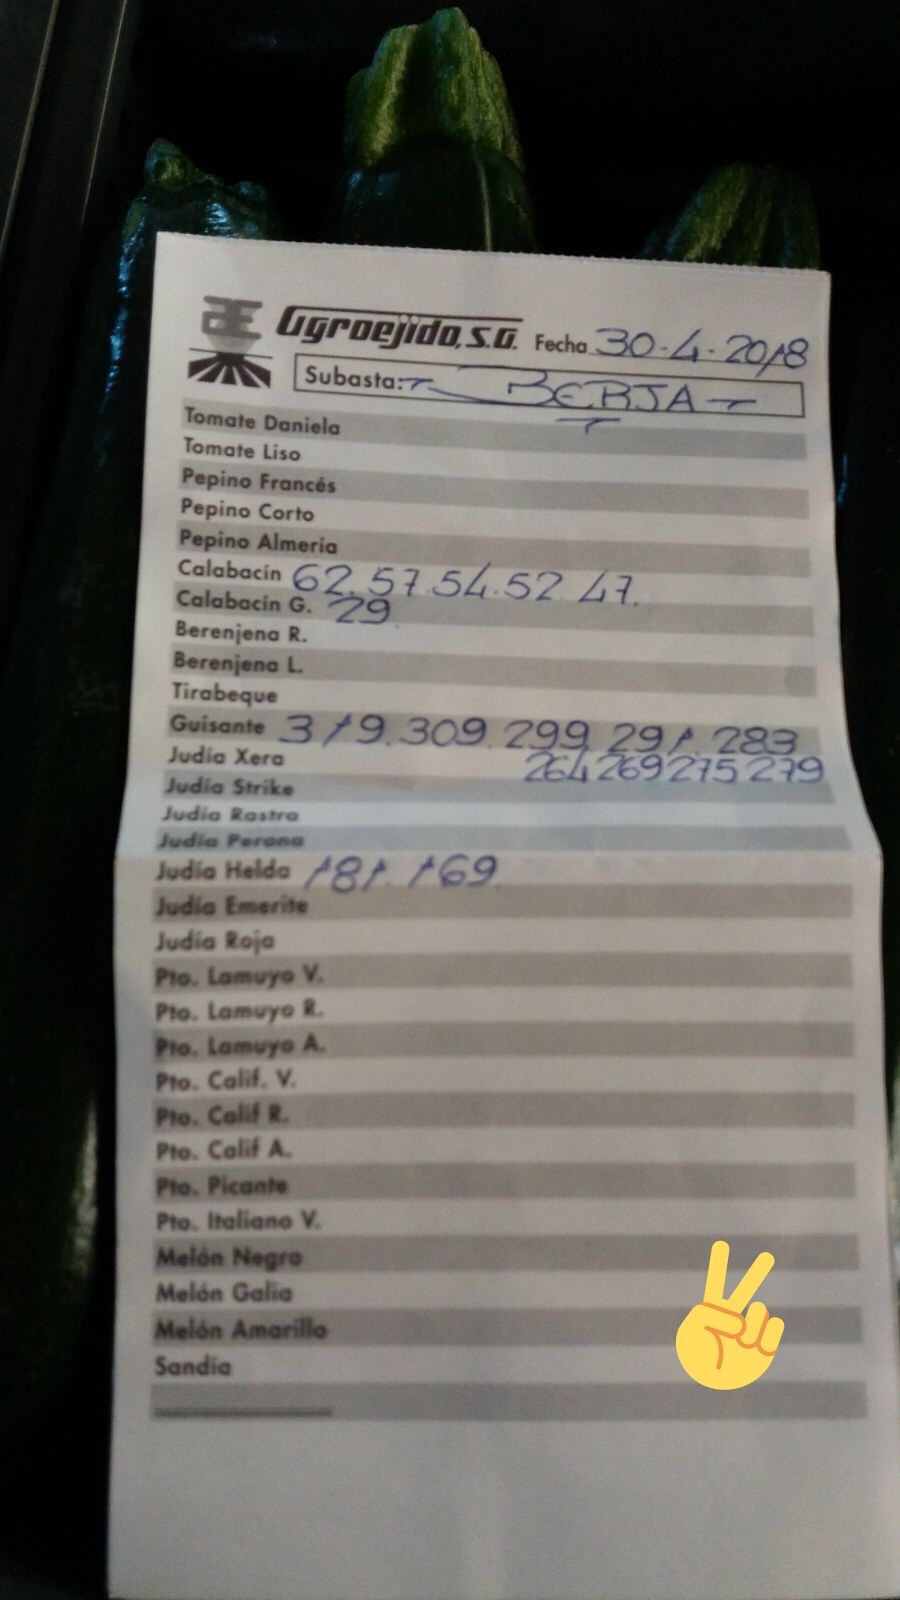 Agroejido, S.A. Fecha 30-4-2018
Subasta: BERJA
Tomate Daniela
Tomate Liso
Pepino Francés
Pepino Corto
Pepino Almería
Calabacín 62.57.54.52.47.
Calabacín G. 29
Berenjena R.
Berenjena L.
Tirabeque
Guisante 319.309.299.291.283
Judía Xera 264 269 275 279
Judía Strike
Judía Rastra
Judía Perona
Judía Helda 181.169
Judía Emerite
Judía Roja
Pto. Lamuyo V.
Pto. Lamuyo R.
Pto. Lamuyo A.
Pto. Calif. V.
Pto. Calif R.
Pto. Calif A.
Pto. Picante
Pto. Italiano V.
Melón Negro
Melón Galia
Melón Amarillo
Sandía